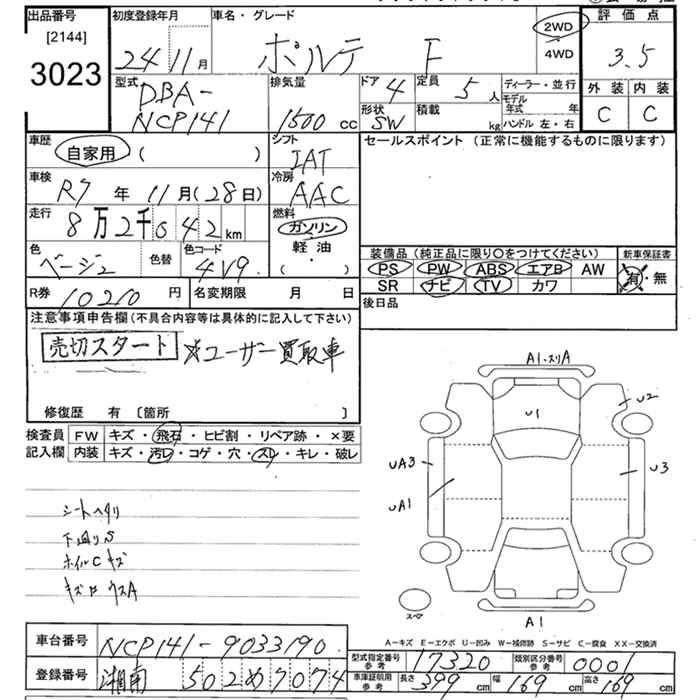 出品番号
[2144]
3023
初度登録年月
24 11 月
車名・グレード
ポルテ F
2WD
4WD
評価点
3.5
外装 内装
C C
型式
DBA-
NCP141
排気量
1500 cc
ドア 4
形状 SW
定員 5 人
積載 kg
ディーラー・並行
モデル年式 年
ハンドル 左・右
車歴
自家用 ( )
シフト
IAT
セールスポイント (正常に機能するものに限ります)
車検
R7 年 11 月 (28 日)
冷房
AAC
走行
8万2千042 km
燃料
ガソリン
軽油
( ・ )
色
ベージュ
色替
色コード
4V9.
装備品 (純正品に限り○をつけてください)
PS PW ABS エアB AW
SR ナビ TV カワ
新車保証書
有・無
R券 10210 円
名変期限 月 日
後日品
注意事項申告欄(不具合内容等は具体的に記入して下さい)
売切スタート ※ユーザー買取車
修復歴 有 〔箇所 〕
検査員
記入欄
FW キズ・飛石・ヒビ割・リペア跡・×要
内装 キズ・汚レ・コゲ・穴・スレ・キレ・破レ
シートヘタリ
下廻りS
ホイルCキズ
A1・スリA
U1
U2
UA3
U3
UA1
スペア
A1
A-キズ E-エクボ U-凹み W-補修跡 S-サビ C-腐食 XX-交換済
車台番号 NCP141-9033190
登録番号 湘南 502 め 7074
型式指定番号
参考
17320
類別区分番号
参考
0001
車庫証明用
参考
長さ 399 cm 幅 169 cm 高さ 169 cm